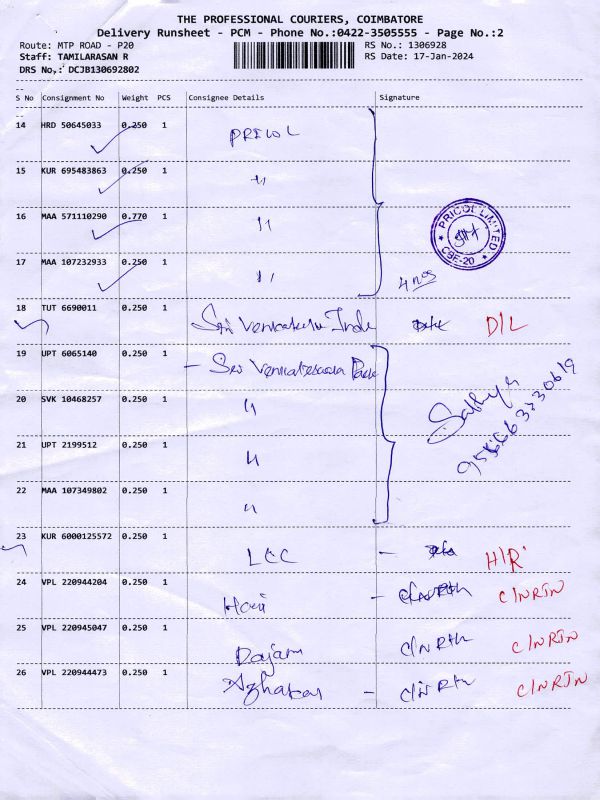 THE PROFESSIONAL COURIERS, COIMBATORE
Delivery Runsheet - PCM - Phone No.:0422-3505555 - Page No.:2
Route: MTP ROAD - P20
RS No.: 1306928
Staff: TAMILARASAN R
RS Date: 17-Jan-2024
DRS No.: DCJB130692802
S No Consignment No Weight PCS Consignee Details Signature
14 HRD 50645033 0.250 1 PRICOL
15 KUR 695483863 0.250 1 "
16 MAA 571110290 0.770 1 "
PRICOL LIMITED CBE-20
17 MAA 107232933 0.250 1 "
4 nos
18 TUT 6690011 0.250 1 Sri Venkateshwa Inds D/L
19 UPT 6065140 0.250 1 - Sri Venkateswara
20 SVK 10468257 0.250 1 "
Sathya
21 UPT 2199512 0.250 1 "
22 MAA 107349802 0.250 1 "
23 KUR 6000125572 0.250 1 LCC - H/R
24 VPL 220944204 0.250 1 Hari - C/NRTN
25 VPL 220945047 0.250 1 Rajam C/NRtn C/NRTN
26 VPL 220944473 0.250 1 Azhakar - C/NRtn C/NRTN